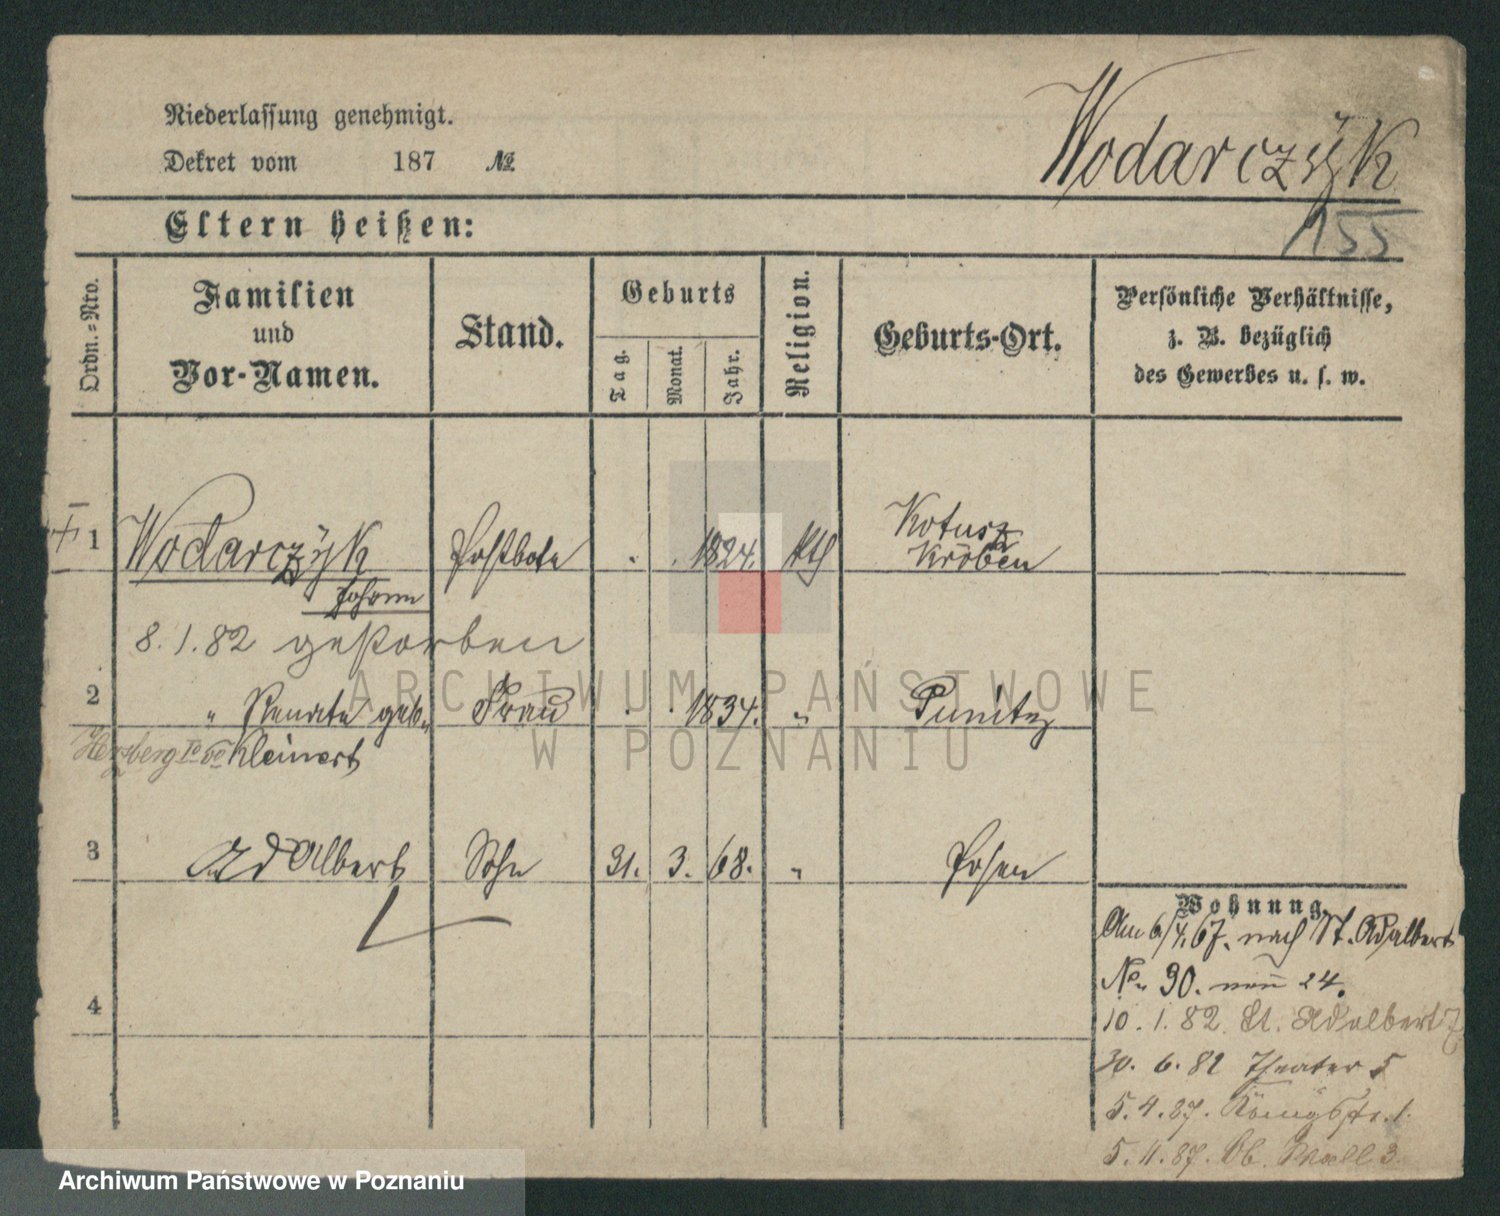 Niederlassung genehmigt.
Dekret vom 187 №
Wodarczÿk
155
Eltern heißen:
Ordn.-Nro.
Familien
und
Vor-Namen.
Stand.
Geburts
Tag.
Monat.
Jahr.
Religion.
Geburts-Ort.
Persönliche Verhältnisse,
z. B. bezüglich
des Gewerbes u. s. w.
1 Wodarczÿk Postbote . . 1824. kth Kotusz
Kröben
Johann
8.1.82 gestorben
2 " Renate geb. Frau . . 1834. " Punitz
Herzberg Kleinert
3 Adalbert Sohn 31. 3. 68. " Posen
4
Wohnung.
Am 6/4.67. nach St. Adalbert
No. 30. neu 24.
10.1.82. St. Adalbert 7
30.6.82 Theater 5
5.4.87. Königsstr. 1.
5.4.87. Ob. Wall 3
ARCHIWUM PAŃSTWOWE
W POZNANIU
Archiwum Państwowe w Poznaniu